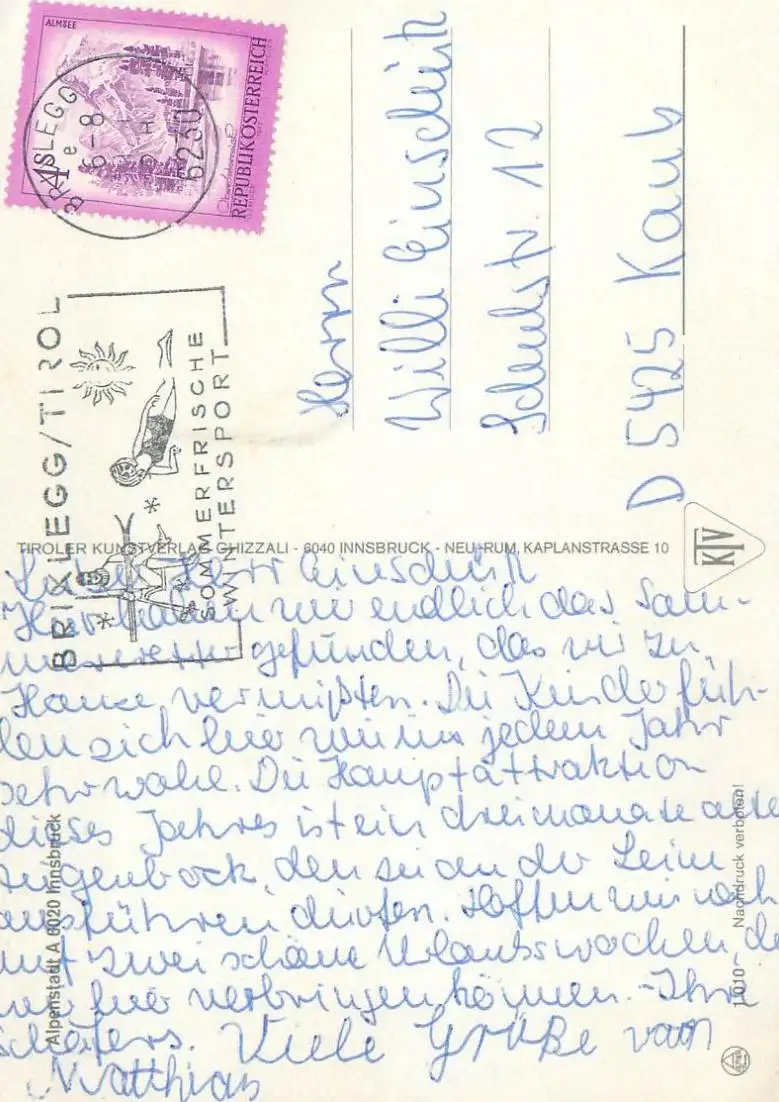 ALMSEE
REPUBLIK ÖSTERREICH
4
BRIXLEGG
6-8
6230
BRIXLEGG/TIROL
SOMMERFRISCHE
WINTERSPORT
Herrn
Willi Einschütz
Schulstr. 12
D 5425 Kaub
TIROLER KUNSTVERLAG CHIZZALI - 6040 INNSBRUCK - NEU-RUM, KAPLANSTRASSE 10
KTV
Lieber Herr Einschütz
Hier haben wir endlich das Som-
merwetter gefunden, das wir zu
Hause vermißten. Die Kinder füh-
len sich hier wie in jedem Jahr
sehr wohl. Die Hauptattraktion
dieses Jahres ist ein drei monate alter
Ziegenbock, den sie an der Leine
ausführen dürfen. Hoffen wir noch
auf zwei schöne Urlaubswochen, die
wir hier verbringen können. - Ihre
Schäfers. Viele Grüße von
Matthias
Alpenstadt A 6020 Innsbruck
Nachdruck verboten!
1010